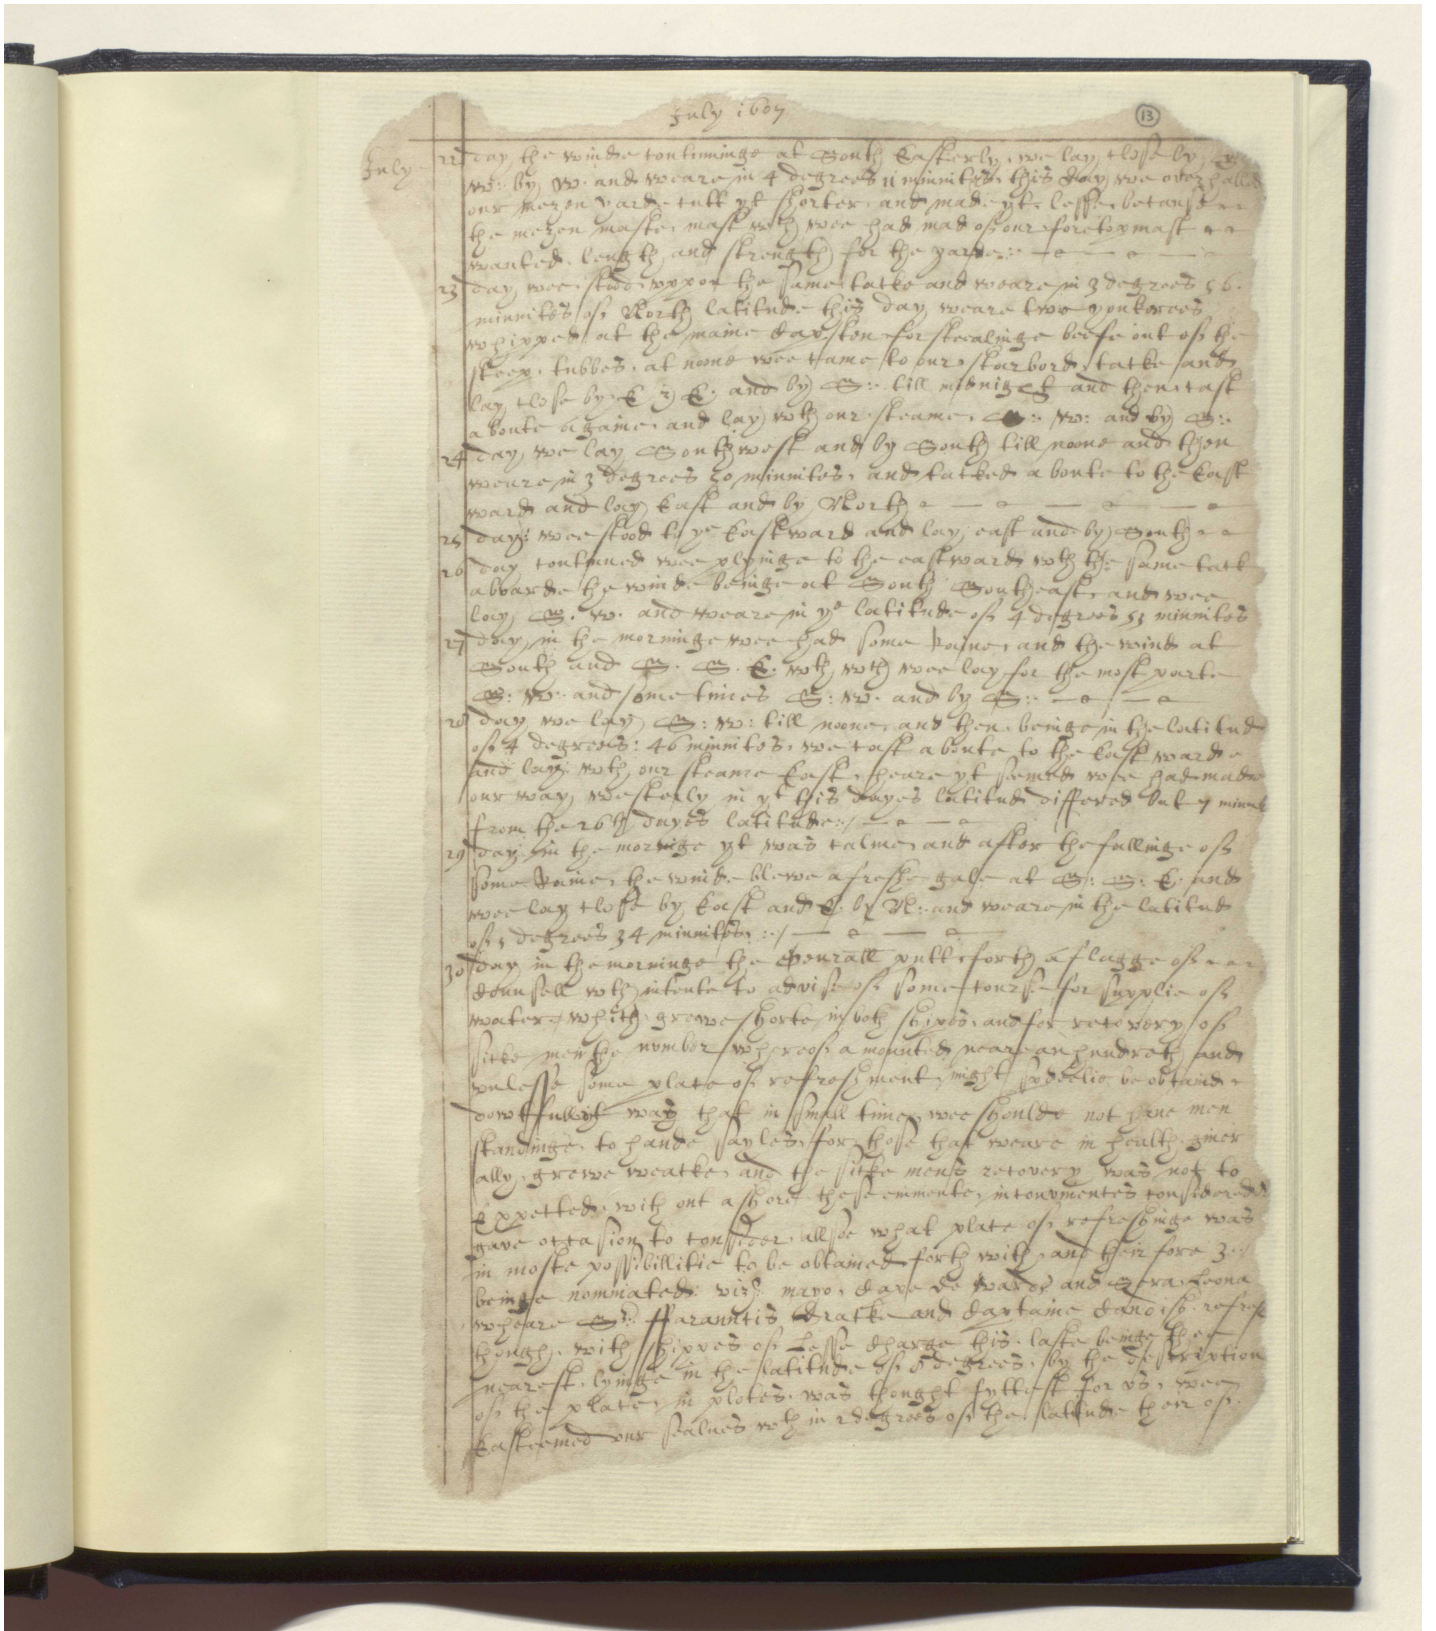 July 1607
13
July 22 day, the winde continuinge at South Easterly, we lay close by, S
w: by, w. and weare in 4 degrees 11 minnites, this day we overhalled
our mezen yarde cutt yt shorter, and made yt lesse, because
the mezen maste, mast wch wee had mad of our foretopmast
wanted length, and strength, for the yarde::
23 day wee stood uppon the same tacke and weare in 3 degrees 56
minnites of North latitude this day weare two yonkerees
whipped at the maine Capsten for stealinge beefe out of the
steep tubbes, at noone wee came to our starbord tacke and
lay close by E E. and by S:. till midnight and then cast
aboute againe, and lay wth our steame, S:. w: and by S:.
24 day, we lay Southwest and by South till noone and then
weare in 3 degrees 20 minnites, and tacked aboute to the East
ward and lay East and by North
25 day: wee stood to ye Eastward and lay, east and by South
26 day continued wee plyinge to the eastward wth the same tack
aboarde the winde beinge at South Southeast, and wee
lay, S. w. and weare in ye latitude of 4 degrees 53 minnites
27 day, in the morninge wee had some Raine, and the wind at
South and S. S. E. wth wch wee lay for the most parte
S: w: and some times S: w. and by S:.
28 day we lay, S: w: till noone, and then beinge in the latitud
of 4 degrees: 46 minnites, we cast aboute to the Eastwarde
and lay wth our steame East, heare yt seemed wee had made
our way, westerly in yt this dayes latitud differed but 7 minnit
from the 26th dayes latitude:/
29 day in the morninge yt was calme, and after the fallinge of
some Raine, the winde blewe a freshe gale at S: S: E. and
wee lay close by East and E. by N: and weare in the latitud
of 5 degrees 34 minnites. :/
30 day in the morninge the Generall putt forth a flagge of
Counsell wth intente to advise of some course for supplie of
water, which growe shorte in both shipes, and for recovery of
sicke men the number whereof amounted neare an hundreth and
unlesse some place of refreshment, might spedelie be obtained
dowtfull yt was that in small time, wee shoulde not have men
standinge to hande sayles, for those that weare in health, giner
ally, growe weacke, and the sicke mens recovery was not to
Expected, with out a shore, these eminente, inconvmentes considered
gave occasion to consider, allsoe what place of refreshinge was
in moste possibillitie to be obtained forth with, and their fore 3:
beinge nominated: viz: mayo, Cape de Ward, and Sera Leona
wheare Sr: ffraunncis Dracke and Captaine Candish refresh
though, with shippes of Lesse Charge this, laste beinge the
nearest, lyinge in the latitude of 8 degrees, by the description
of the place, in plotes, was thought fyttest for us, wee
Easteemed our sealues wth in 2 degrees of the latitude ther of